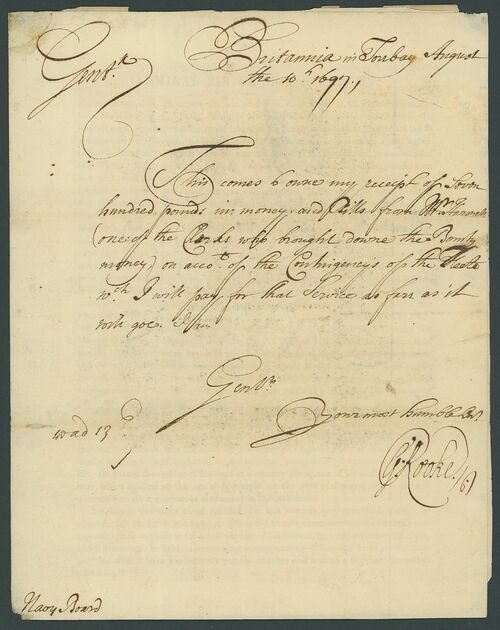 Britannia in Torbay August
the 10th 1697,
Gentn
This comes to owne my receipt of Seven
hundred pounds in money, and Bills from Mr
(one of the Clerks who brought downe the Bounty
money) on acct of the Contingency's of the Fleete
wch I will pay for that Service as farr as it
will goe. I am
Gentn
Your most humble Servt
read 13
G: Rooke
Navy Board